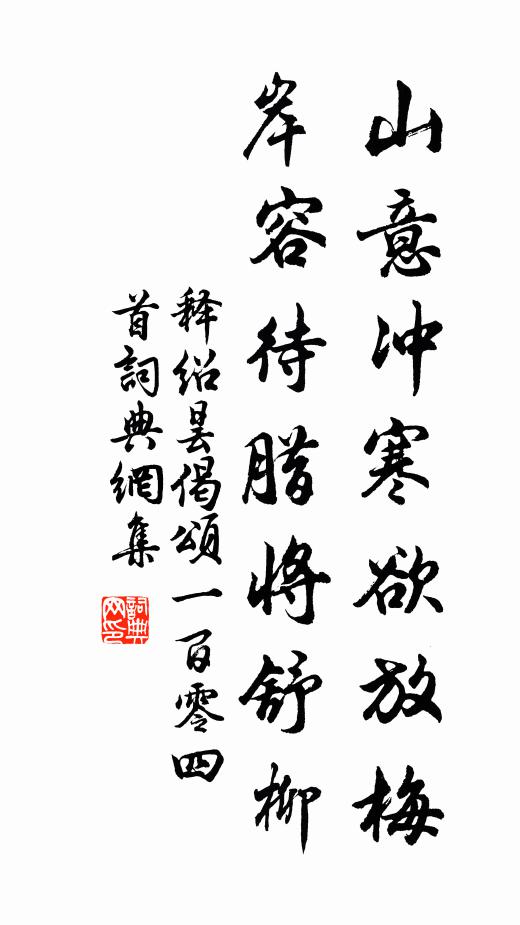 山意冲寒欲放梅
岸容待腊将舒柳
释绍昙偈頌一百零四
首詞典網集
詞典网印